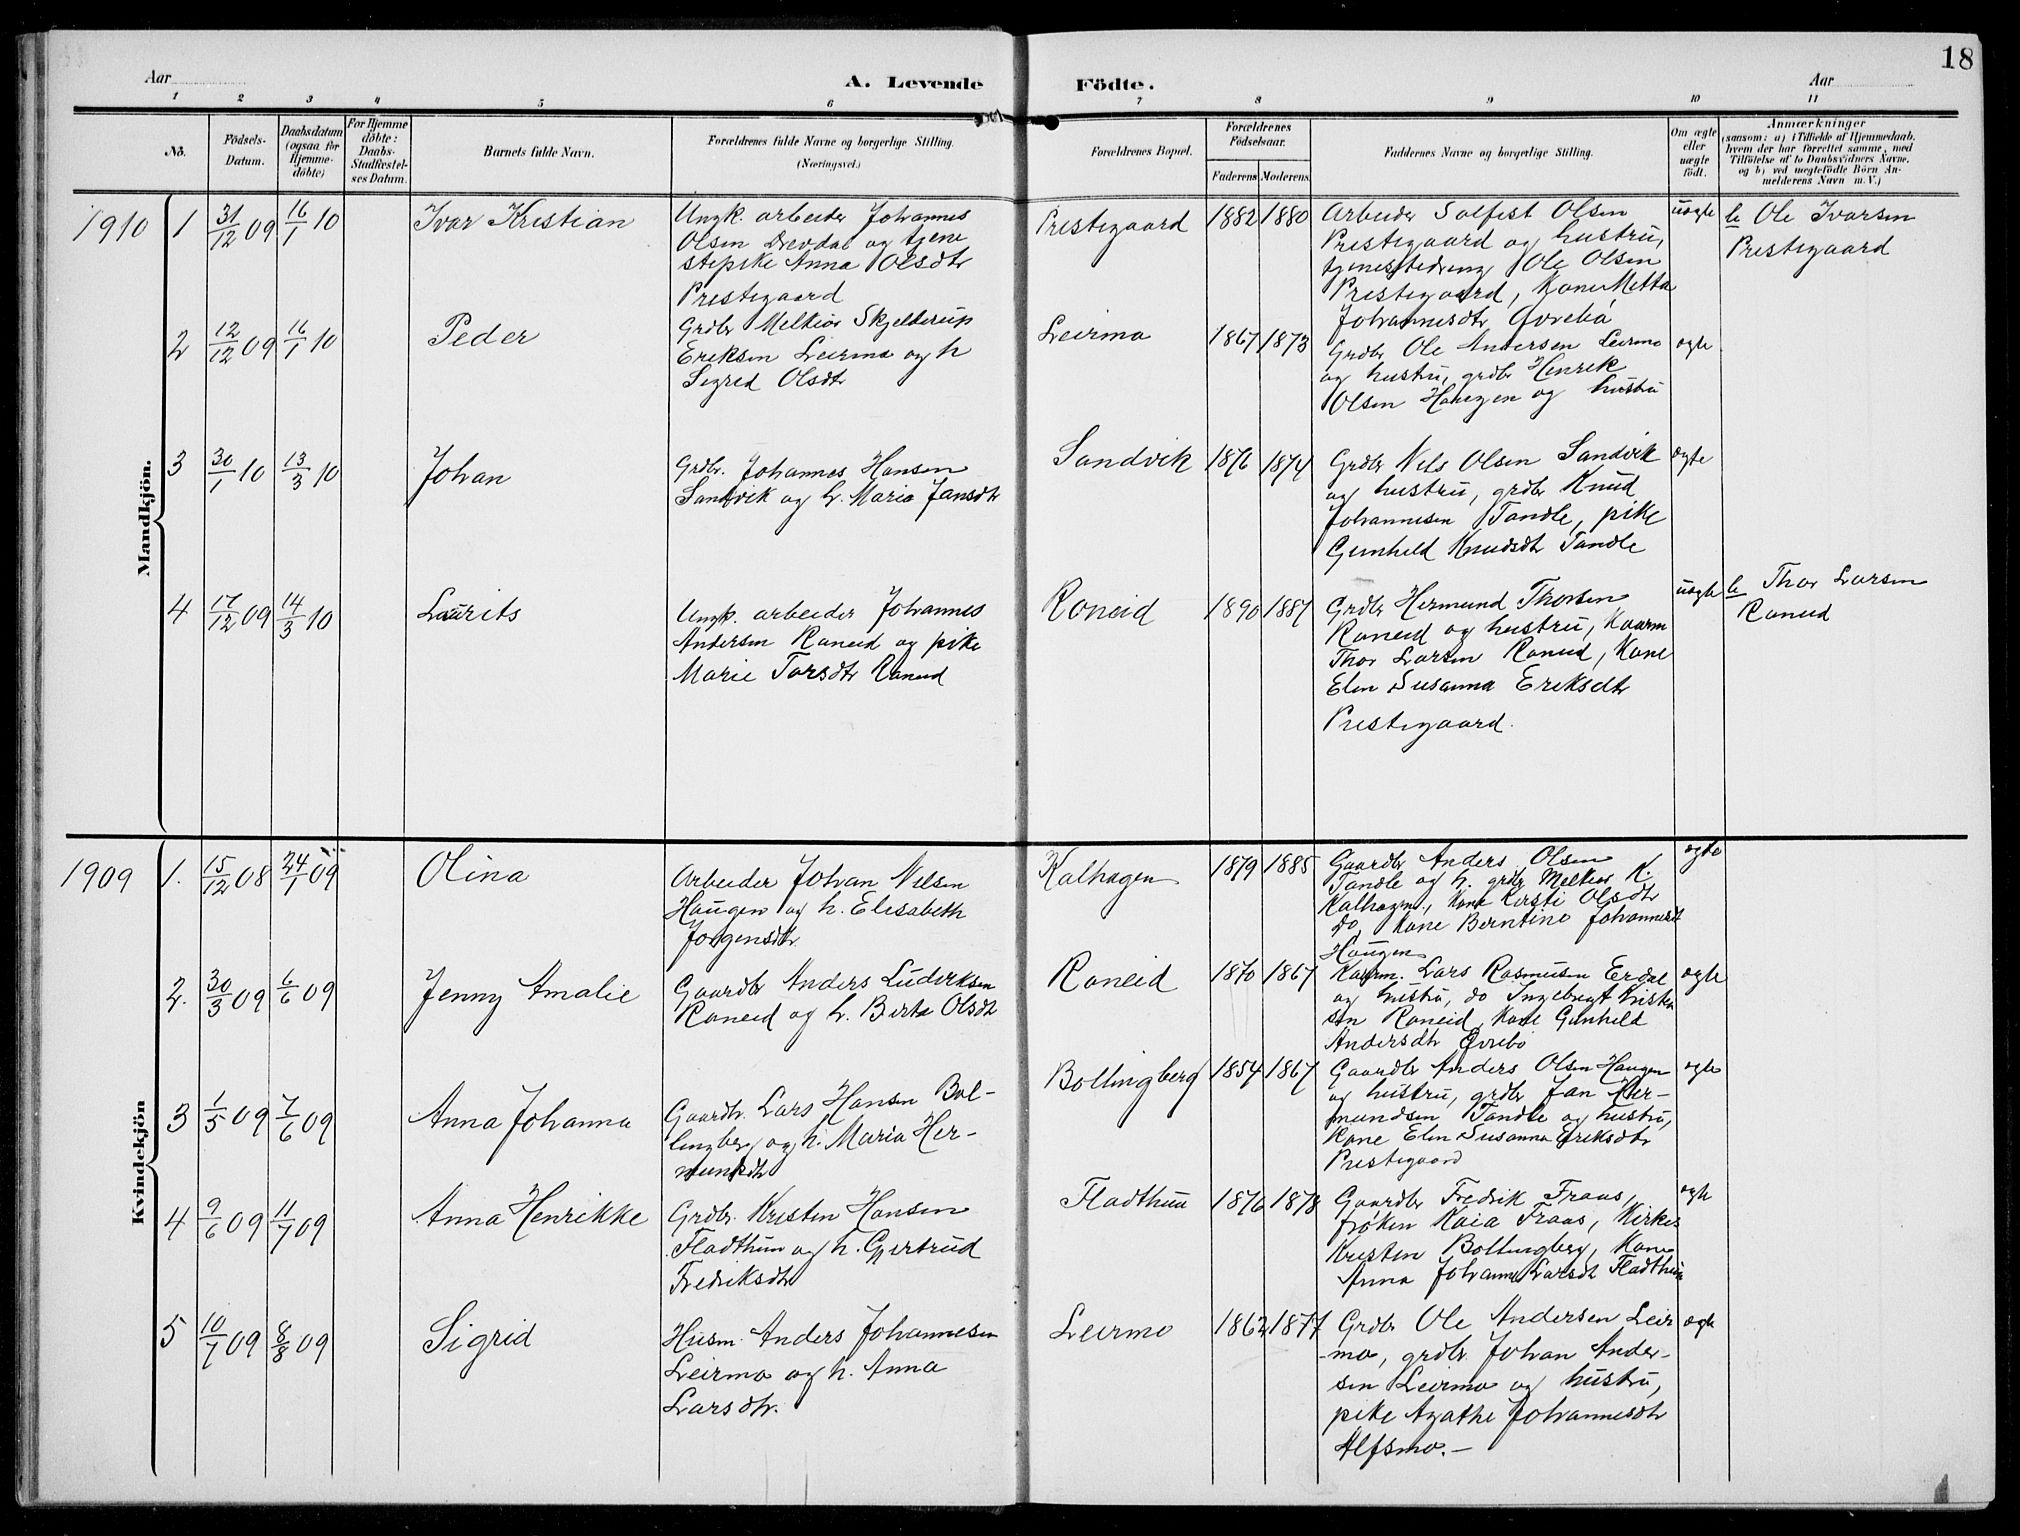 18
Aar
A. Levende
Födte.
Aar
1 2 3 4 5 6 7 8 9 10 11
No.
Födsels-
Datum.
Daabsdatum
(ogsaa for
Hjemme-
döbte)
For Hjemme
döbte:
Daabs-
Stadfæstel-
ses Datum.
Barnets fulde Navn.
Forældrenes fulde Navne og borgerlige Stilling.
(Næringsvei.)
Forældrenes Bopæl.
Forældrenes
Födselsaar.
Faderens Moderens
Faddernes Navne og borgerlige Stilling.
Om ægte
eller
uægte
födt.
Anmærkninger
(saasom: a) i Tilfælde af Hjemmedaab,
hvem der har forrettet samme, med
Tilföielse af to Daabsvidners Navne,
og b) ved uægtefödte Börn An-
melderens Navn m. V.)
Mandkjön.
1910
1
31/12 09
16/1 10
Ivar Kristian
Ungk. arbeider Johannes
Olsen Drevdal og tjene
stepike Anna Olsdtr
Prestegaard
Prestegaard
1882
1880
Arbeider Solfest Olsen
Prestegaard og hustru,
tjenestedreng Ole Olsen
Prestegaard, Kone Metta
Johannesdtr Øvrebø
uægte
b Ole Ivarsen
Prestegaard
2
12/12 09
16/1 10
Peder
Grdbr Melkior Skjelderup
Eriksen Leirmo og h
Sigred Olsdtr
Leirmo
1867
1873
Grdbr Ole Andersen Leirmo
og hustru, grdbr Henrik
Olsen Haugen og hustru
ægte
3
30/1 10
13/3 10
Johan
Grdbr. Johannes Hansen
Sandvik og h. Maria Jansdtr
Sandvik
1876
1874
Grdbr Nils Olsen Sandvik
og hustru, grdbr Knud
Johannesen Tandle, pike
Gunhild Knudsdtr Tandle
ægte
4
17/12 09
14/3 10
Laurits
Ungk. arbeider Johannes
Andersen Roneid og pike
Marie Torsdtr Roneid
Roneid
1890
1887
Grdbr Hermund Thorsen
Roneid og hustru, Kaarm
Thor Larsen Roneid, Kone
Elen Susanna Eriksdtr
Prestegaard.
uægte
b Thor Larsen
Roneid
Kvindekjön
1909
1.
15/12 08
24/1 09
Olina
Arbeider Johan Nilsen
Haugen og h. Elisabeth
Jørgensdtr
Kalhagen
1879
1885
Gaardbr Anders Olsen
Tandle og h. grdbr Melkior K.
Kalhagen, Kone Kirsti Olsdtr
do, Kone Berntine Johannesdt
Haugen
ægte
2.
30/3 09
6/6 09
Jenny Amalie
Gaardbr Anders Luderksen
Roneid og h. Berta Olsdtr
Roneid
1870
1867
Kaarm. Lars Rasmusen Erdal
og hustru, do Ingebregt Kristen
sen Roneid, Kone Gunhild
Andersdtr Øvrebø
ægte
3
1/5 09
7/6 09
Anna Johanna
Gaardbr. Lars Hansen Bol-
lingberg og h. Maria Her-
mundsdtr
Bollingberg
1854
1867
Gaardbr Anders Olsen Haugen
og hustru, grdbr Jan Her-
mundsen Tandle og hustru,
Kone Elen Susanna Eriksdtr
Prestegaard
ægte
4
9/6 09
11/7 09
Anna Henrikke
Grdbr. Kristen Hansen
Fladthun og h. Gjertrud
Fredriksdtr
Fladthun
1876
1878
Gaardbr Fredrik Fraas,
frøken Kaia Fraas, Kirkes
Kristen Bollingberg, Kone
Anna Johanne Larsdt Fladthun
ægte
5
10/7 09
8/8 09
Sigrid
Husm. Anders Johannesen
Leirmo og h. Anna
Larsdtr.
Leirmo
1862
1877
Grdbr Ole Andersen Leir
-mo, grdbr. Johan Ander-
sen Leirmo og hustru,
pike Agathe Johannesdtr
Alfsmo.-
ægte